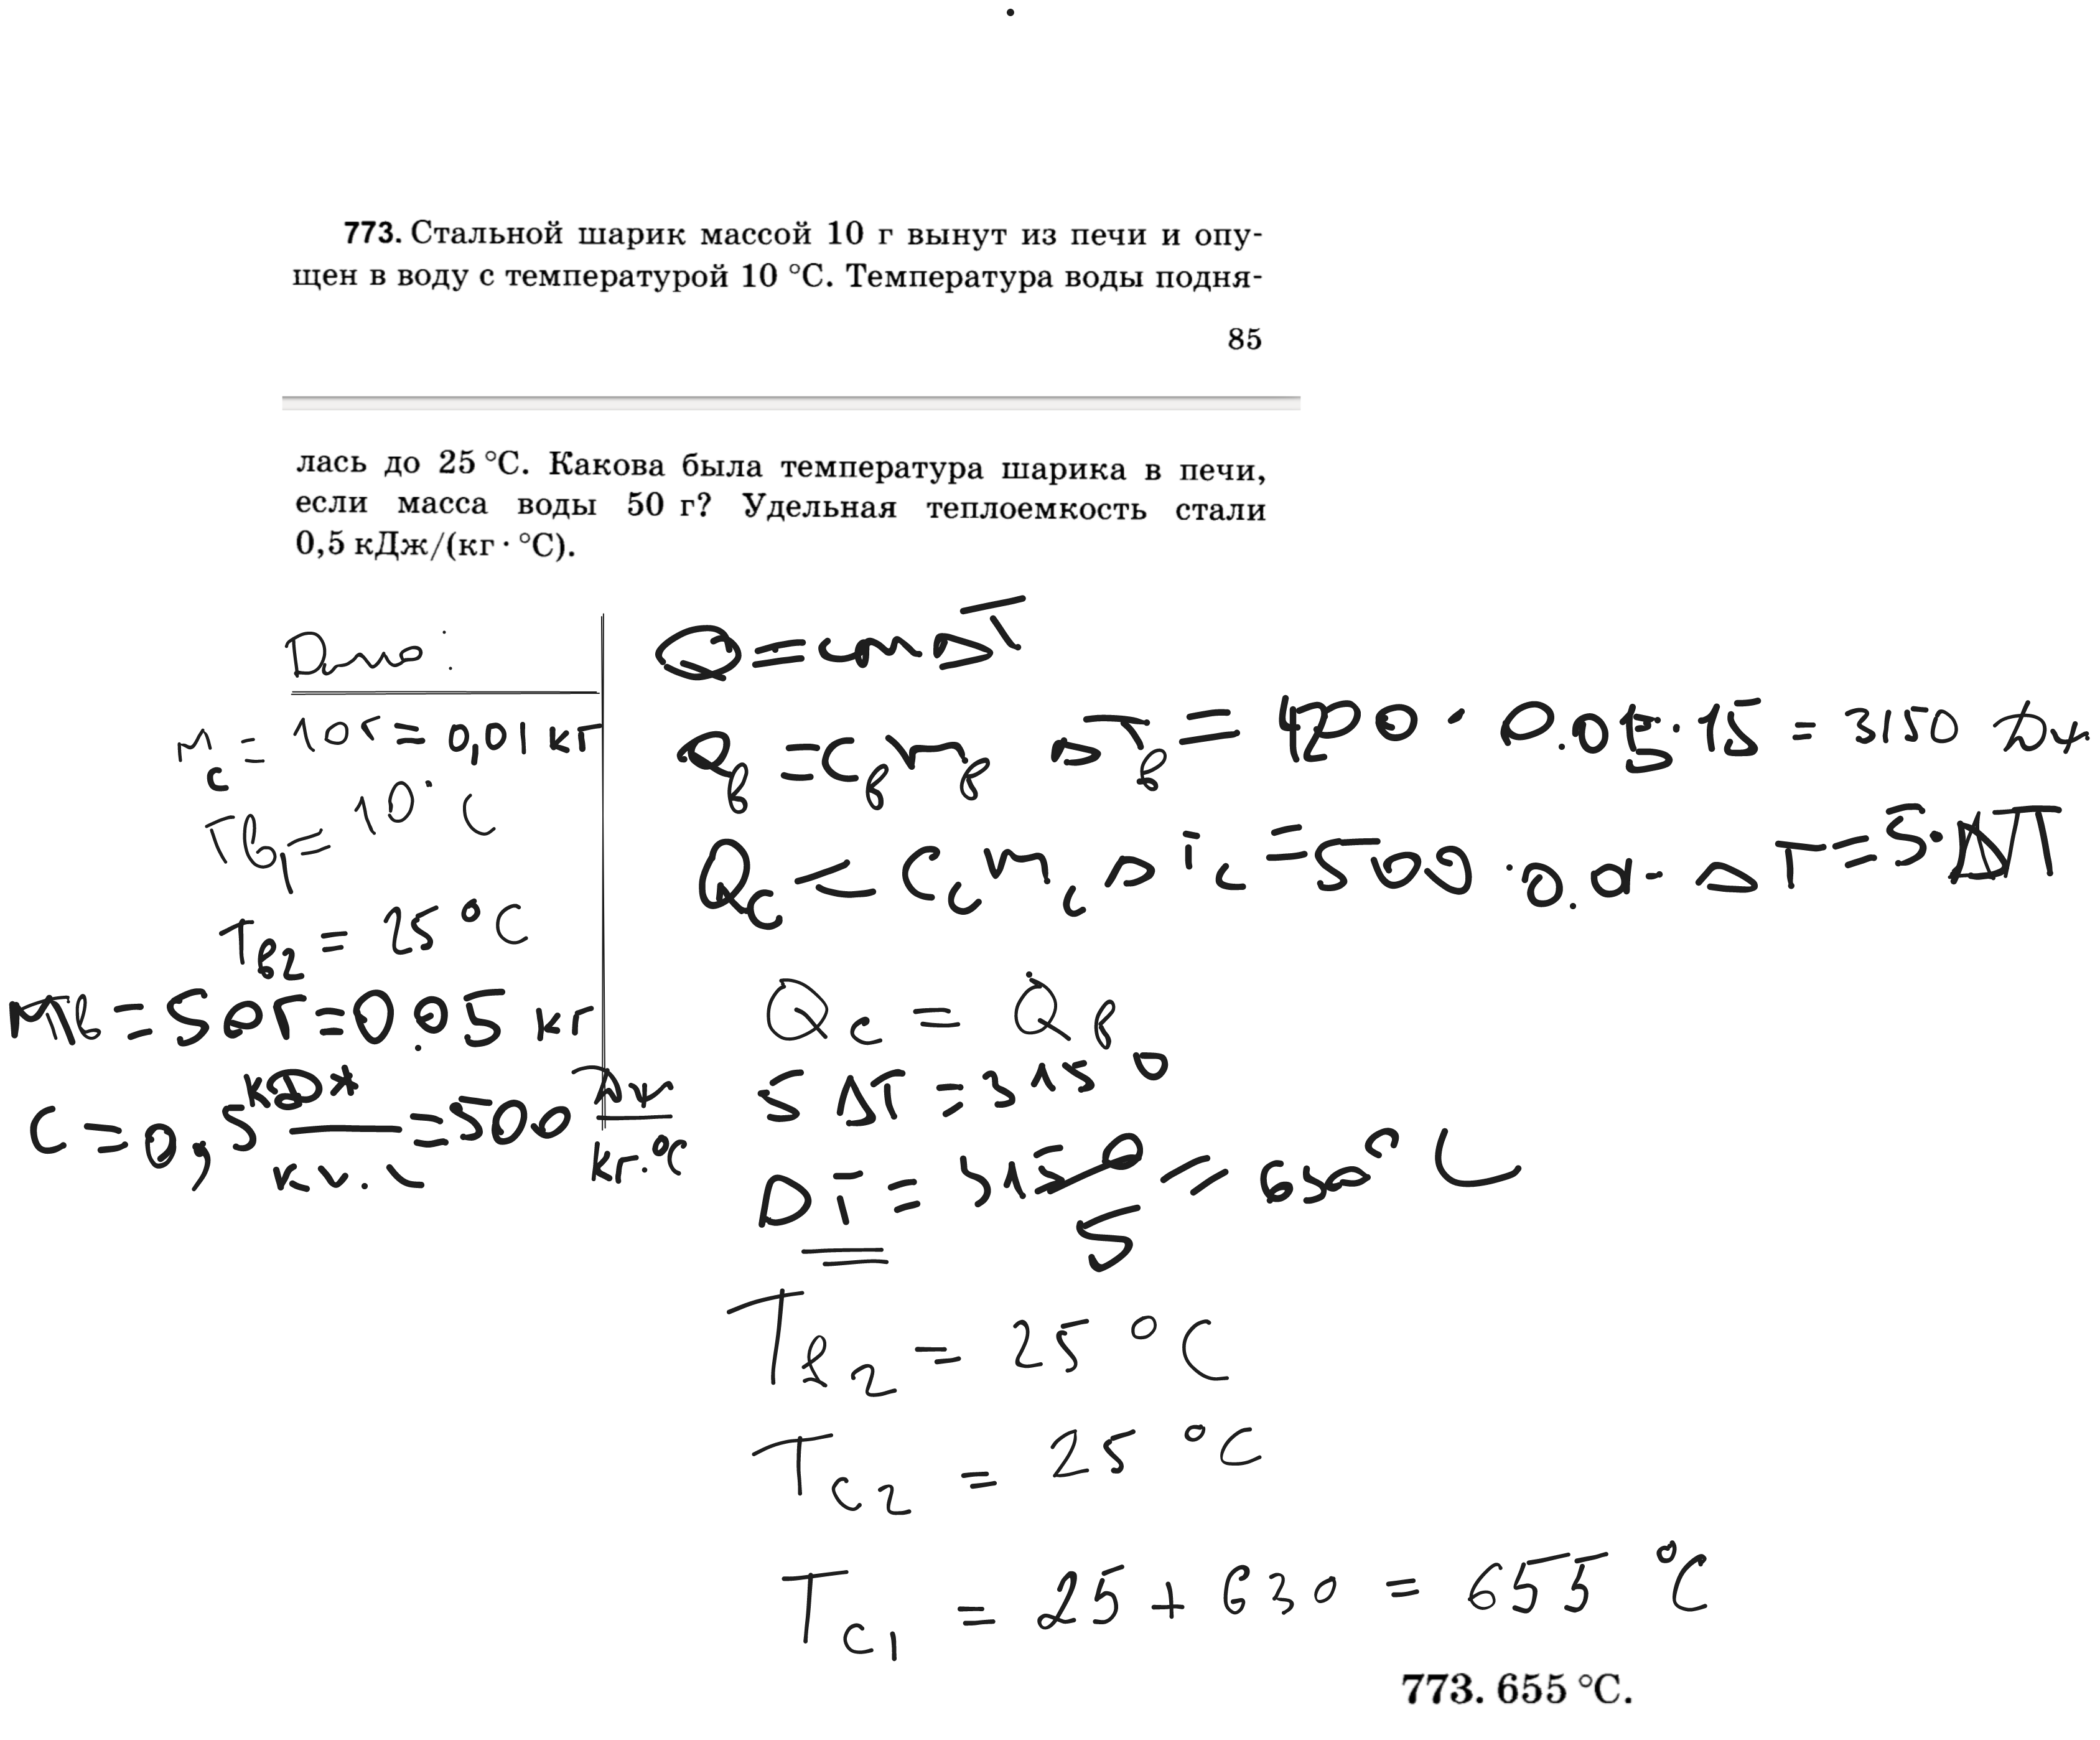 773. Стальной шарик массой 10 г вынут из печи и опу-
щен в воду с температурой 10 °C. Температура воды подня-
85
лась до 25 °C. Какова была температура шарика в печи,
если масса воды 50 г? Удельная теплоемкость стали
0,5 кДж/(кг · °C).
Дано:
Mc = 10 г = 0,01 кг
Tв1 = 10°C
Tв2 = 25 °C
mв = 50 г = 0.05 кг
C = 0,5 кДж/кг.C = 500 Дж/кг.°C
Q = cmΔT
Qв = Cв mв ΔTв = 4200 · 0.05 · 15 = 3150 Дж
Qc = Cc mc ΔTc = 500 · 0.01 · ΔT = 5 · ΔT
Qc = Qв
5 ΔT = 3150
ΔT = 3150/5 = 630° C
Tв2 = 25 °C
Tc2 = 25 °C
Tc1 = 25 + 630 = 655 °C
773. 655 °C.